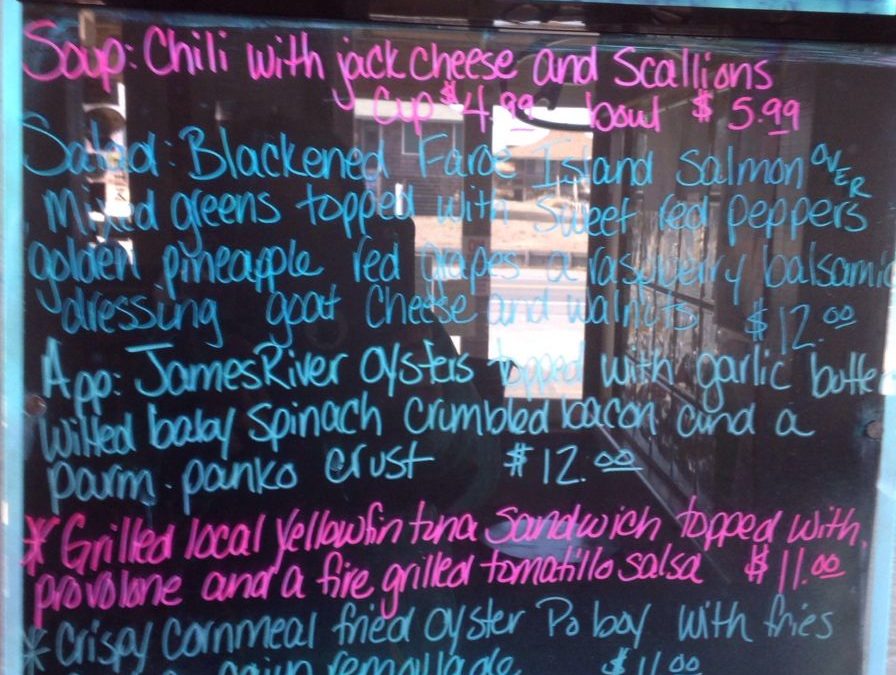 Soup: Chili with jack cheese and Scallions
cup $4.99 bowl $5.99
Salad: Blackened Faroe Island Salmon OVER
Mixed greens topped with sweet red peppers
golden pineapple red grapes a raspberry balsamic
dressing goat cheese and walnuts $12.00
App: James River oysters topped with garlic butte
wilted baby spinach crumbled bacon and a
parm. panko crust $12.00
* Grilled local yellowfin tuna sandwich topped with
provolone and a fire grilled tomatillo salsa $11.00
* Crispy cornmeal fried oyster Po boy with fries
cajun remoulade $11.00